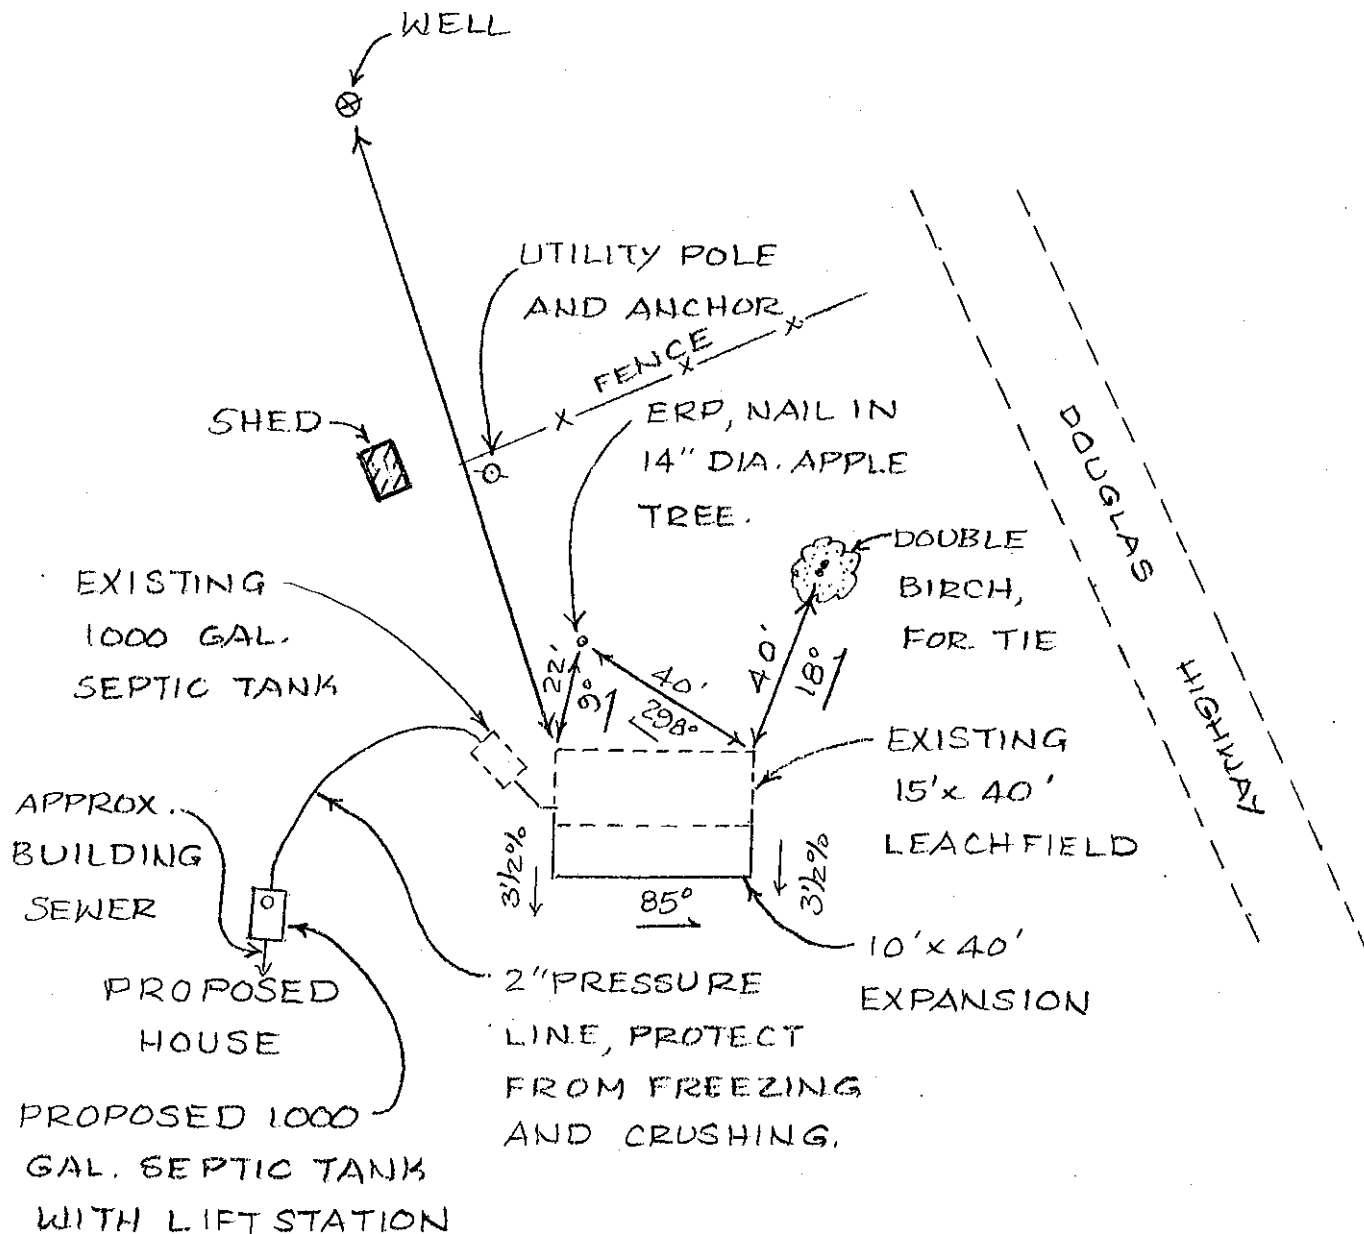 WELL
UTILITY POLE
AND ANCHOR
FENCE
SHED
ERP, NAIL IN
14" DIA. APPLE
TREE.
DOUGLAS
HIGHWAY
DOUBLE
BIRCH,
FOR TIE
EXISTING
1000 GAL.
SEPTIC TANK
22'
9°
40'
298°
40'
18°
EXISTING
15'x 40'
LEACHFIELD
APPROX.
BUILDING
SEWER
3½%
85°
3½%
10'x 40'
EXPANSION
PROPOSED
HOUSE
2" PRESSURE
LINE, PROTECT
FROM FREEZING
AND CRUSHING.
PROPOSED 1000
GAL. SEPTIC TANK
WITH LIFT STATION